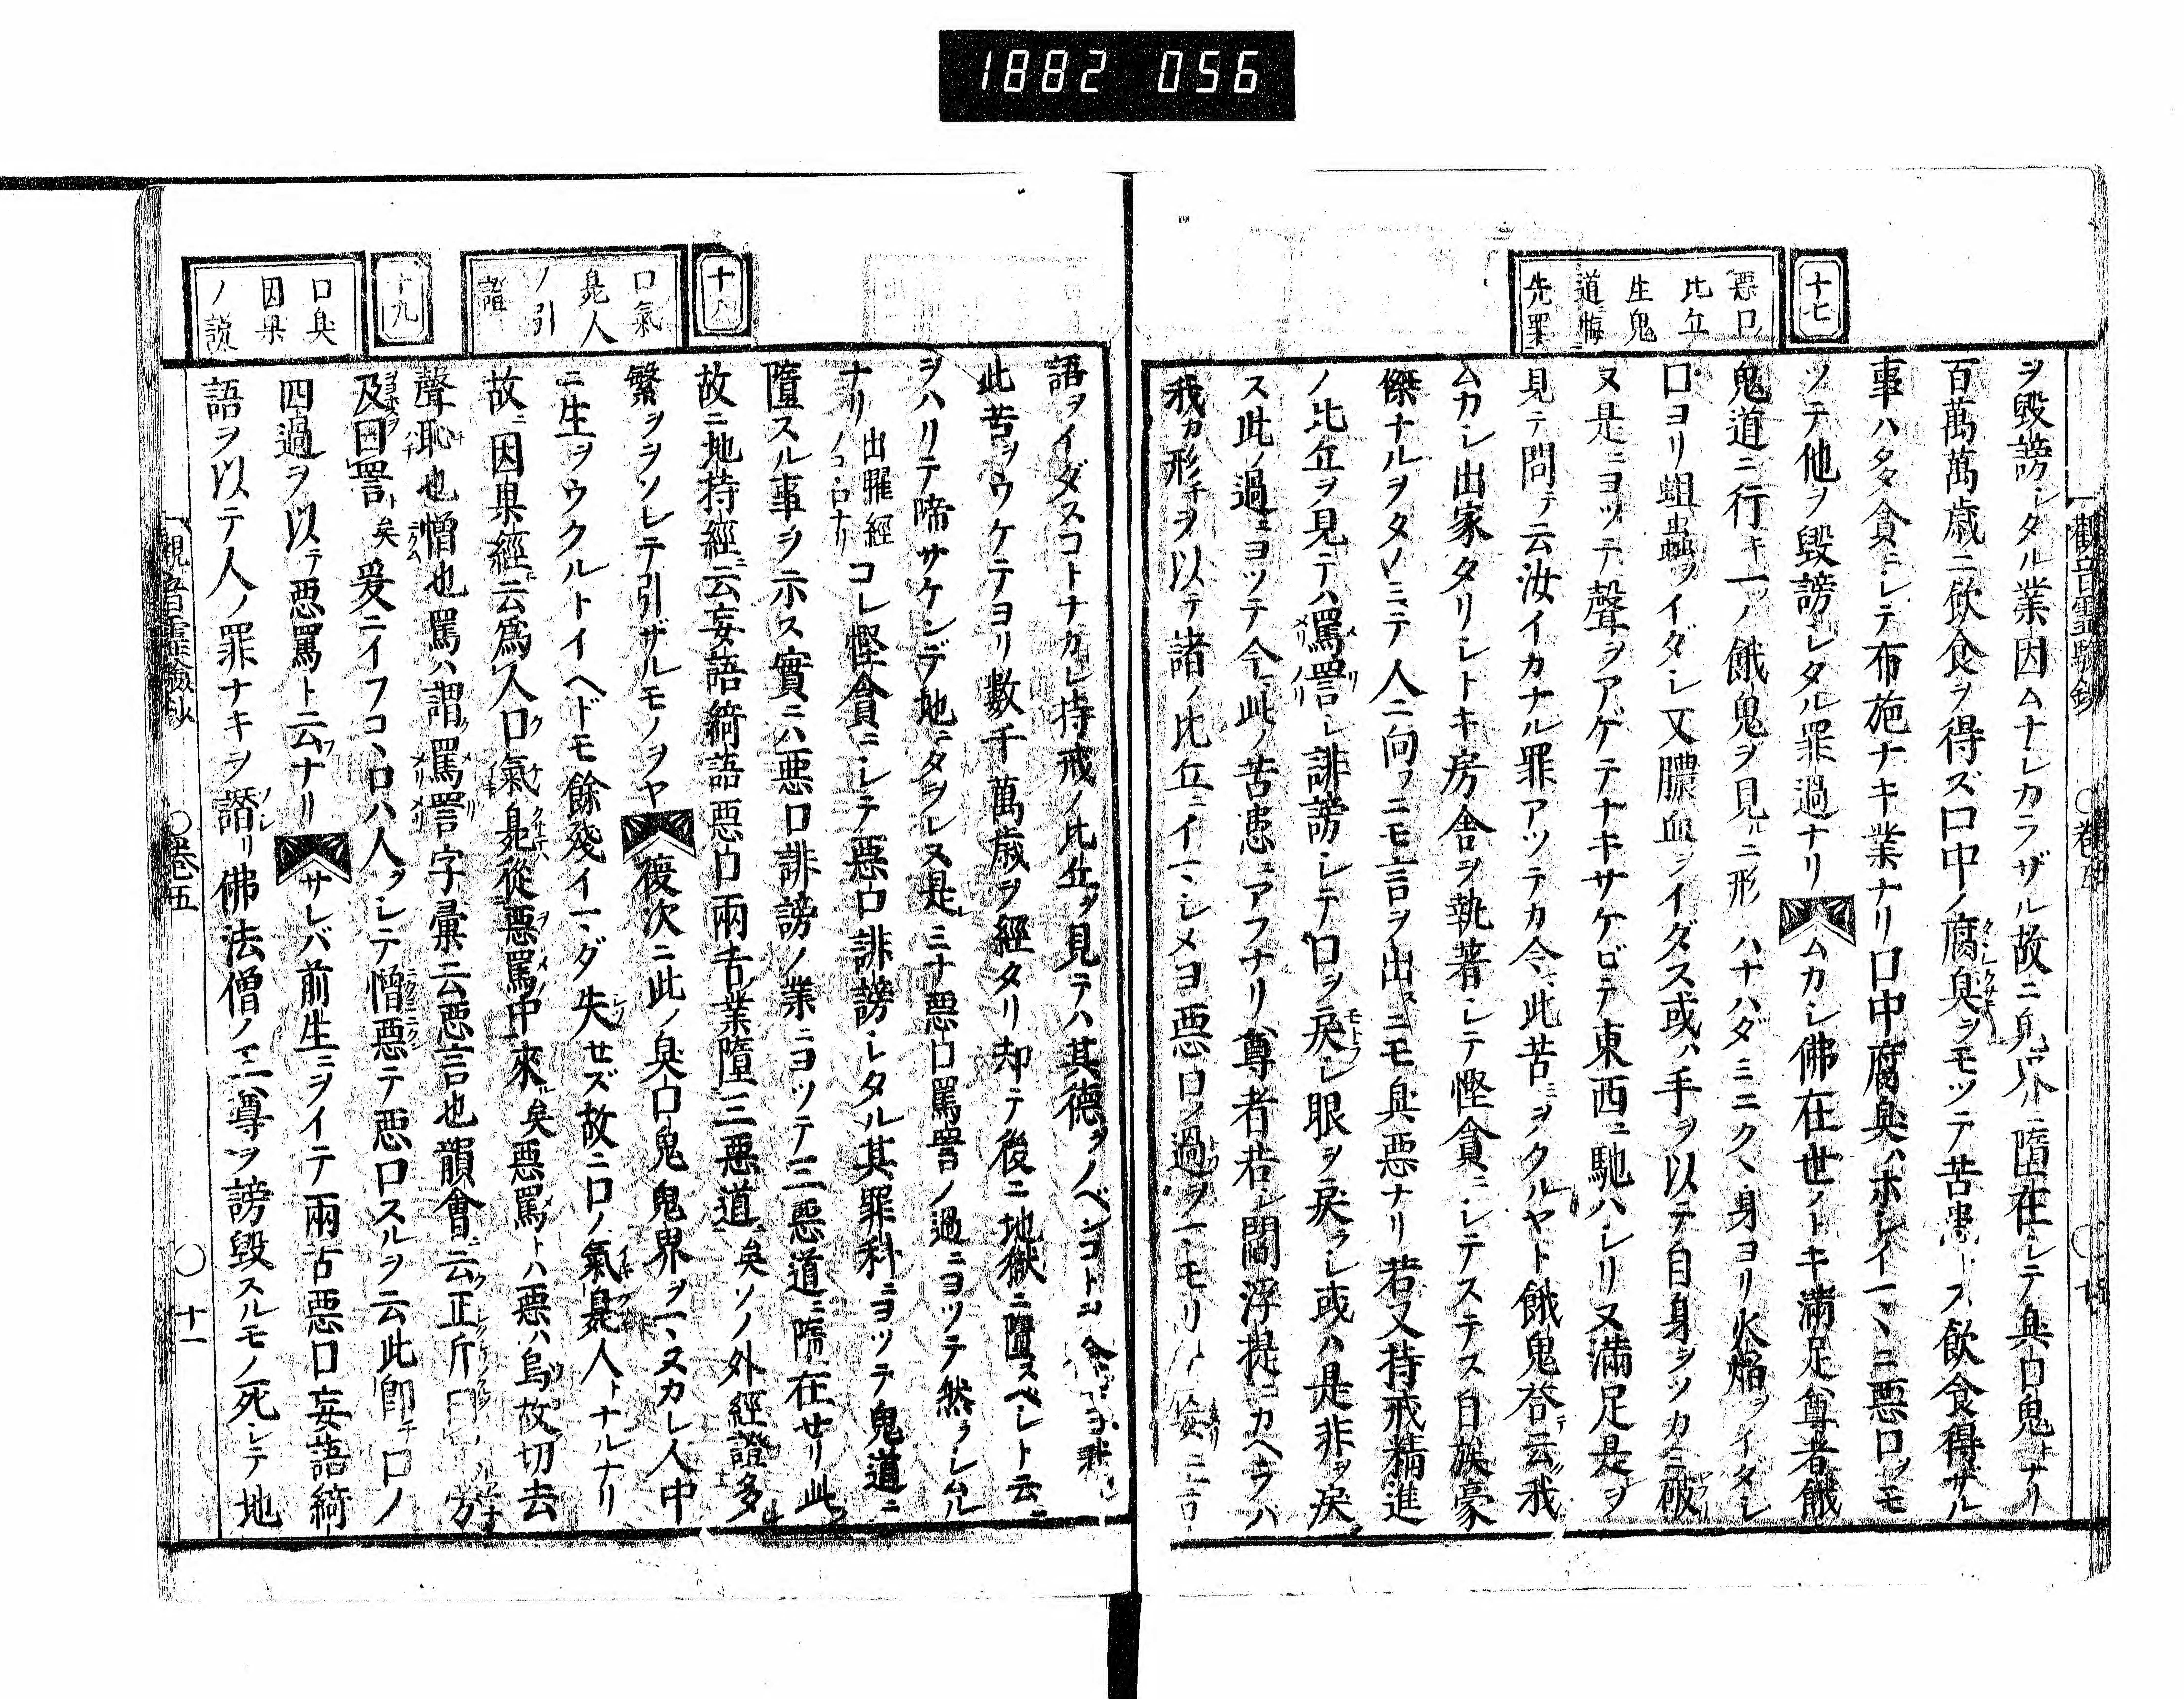 1882 056
十七
悪口
比丘
生鬼
道悔
先罪
ヲ毀謗シタルノ業因ムナシカラザル故ニ鬼界ニ墮在シテ臭口鬼トナリ
百萬萬歳ニ飲食ヲ得ズ口中ノ腐臭ヲモツテ苦患トス飲食得ザル
事ハ多貪ニシテ布施ナキ業ナリ口中腐臭ハホシイマヽニ惡口ヲモ
ツテ他ヲ毀謗シタル罪過ナリムカシ佛在世ノトキ滿足尊者餓
鬼道ニ行キ一ノ餓鬼ヲ見ルニ形ハナハダミニクヽ身ヨリ火焔ヲイダシ
口ヨリ蛆蟲ヲイダシ又膿血ヲイダス或ハ手ヲ以テ自身ヲツカミ破
又是ニヨツテ聲ヲアゲテナキサケビテ東西ニ馳ハシリ又滿足是ヲ
見テ問テ云汝イカナル罪アツテカ今此苦ヲウクルヤト餓鬼荅テ云我
ムカシ出家タリシトキ房舎ヲ執著シテ慳貪ニシテステス自族豪
傑ナルヲタノミテ人ニ向フニモ言ヲ出スニモ臭惡ナリ若又持戒精進
ノ比丘ヲ見テハ罵詈シ誹謗シテ口ヲ戻シ眼ヲ戻ラシ或ハ是非ヲ戻
ス此ノ過ニヨツテ今此ノ苦患ニアフナリ尊者若シ閻浮提ニカヘラハ
我カ形チヲ以テ諸ノ比丘ニイマシメヨ惡口ノ過ヲマモリ妄ニ言
語ヲイダスコトナカレ持戒ノ比丘ヲ見テハ其德ヲノベシコト
此苦ヲウケテヨリ數千萬歳ヲ經タリ却テ後ニ地獄ニ墮スベシト云
ヲハリテ啼サケンデ地ニタヲレ又是ミナ惡口罵詈ノ過ニヨツテ然ラシムル
ナリ出曜經ノコヽロナリコレ慳貪ニシテ惡口誹謗シタル其罪科ニヨツテ鬼道ニ
墮スル事ヲ示ス實ニハ惡口誹謗ノ業ニヨツテ三惡道ニ墮在セリ此
故ニ地持經云妄語綺語惡口兩舌業墮三惡道矣ソノ外經證多
繁ヲヲソレテ引ザルモノヲヤ復次ニ此ノ臭口鬼鬼界ヲマヌカレ人中
ニ生ヲウクルトイヘドモ餘殘イマダ失セズ故ニ口ノ氣臭人トナルナリ
故ニ因果經云爲人口氣臭從惡罵中來矣惡罵トハ惡ハ烏故切去
聲恥也憎也罵ハ謂罵詈字彙云惡言也韻會云正斤曰
及曰詈矣爰ニイフコヽロハ人ヲシテ憎惡テ惡口スルヲ云此卽チ口ノ
四過ヲ以テ惡罵ト云ナリサレバ前生ニヲイテ兩舌惡口妄語綺
語ヲ以テ人ノ罪ナキヲ譖リ佛法僧ノ三尊ヲ謗毀スルモノ死シテ地
十八
口氣
臭人
ノ引
證
十九
口臭
因果
ノ説
觀音靈驗鈔 ○卷五 ○十一